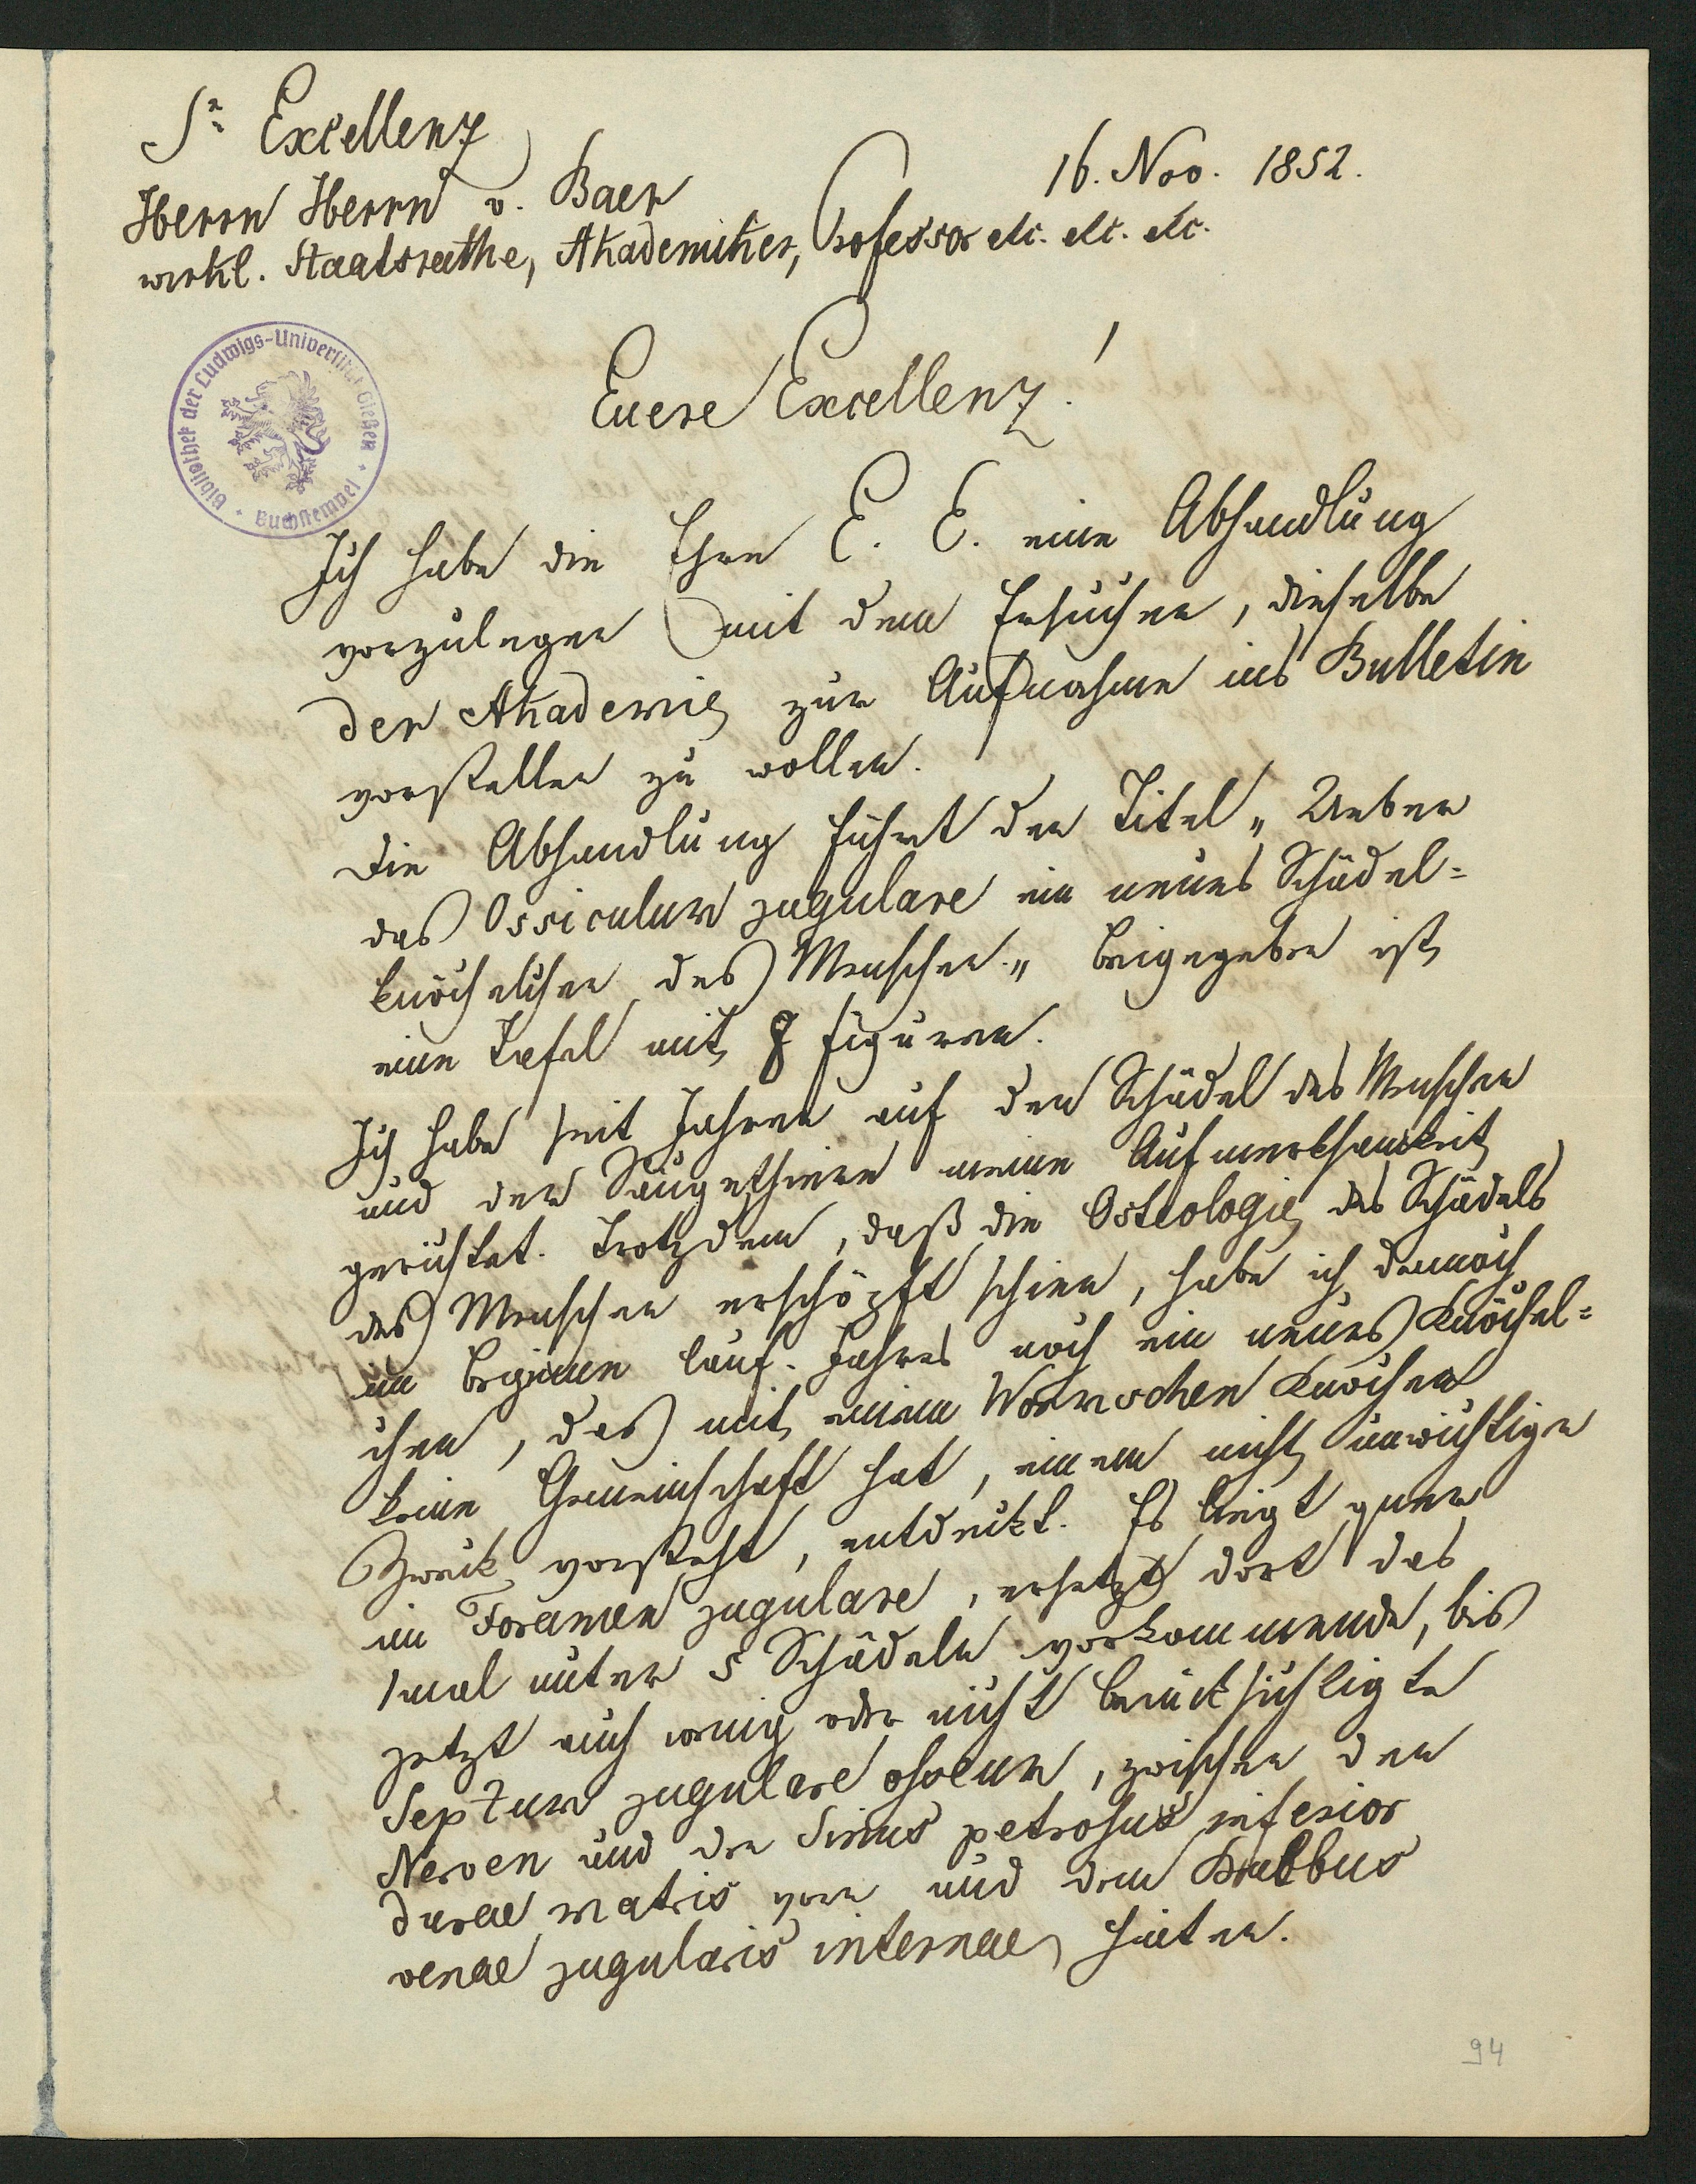 Sr Excellenz
Herrn Herrn v. Baer
16. Nov. 1852.
wirkl. Staatsrathe, Akademiker, Professor etc. etc. etc.
Bibliothek der Ludwigs-Universität Gießen
Buchstempel
Euere Excellenz!
Ich habe die Ehre E. E. eine Abhandlung
vorzulegen mit dem Ersuchen, dieselbe
der Akademie zur Aufnahme ins Bulletin
vorstellen zu wollen.
Die Abhandlung führt den Titel „Ueber
das Ossiculum jugulare ein neues Schädel=
knöchelchen des Menschen." Beigegeben ist
eine Tafel mit 8 Figuren.
Ich habe seit Jahren auf den Schädel des Menschen
und der Säugethiere meine Aufmerksamkeit
gerichtet. Trotzdem, daß die Osteologie des Schädels
des Menschen erschöpft schien, habe ich dennoch
im Beginnen lauf. Jahres noch ein neues Knöchel=
chen, das mit einem Wormschen Knochen
keine Gemeinschaft hat, einem nicht unwichtigen
Zweck vorsteht, entdeckt. Es liegt quer
im Foramen jugulare, ersetzt dort das
1mal unter 5 Schädeln vorkommende, bis
jetzt auch wenig oder nicht berücksichtigte
Septum jugulare osseum, zwischen den
Nerven und den Sinus petrosus inferior
durae matris vorn und dem Bulbus
venae jugularis internae hinten.
94